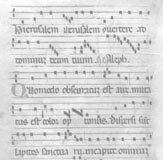 Iherusalem iherusalem convertere ad
dominum deum tuum. Aleph.
Quomodo obscuratum est aurum muta
tus est color optimus. Dispersi sunt
lapides sanctuarii in capite omnium